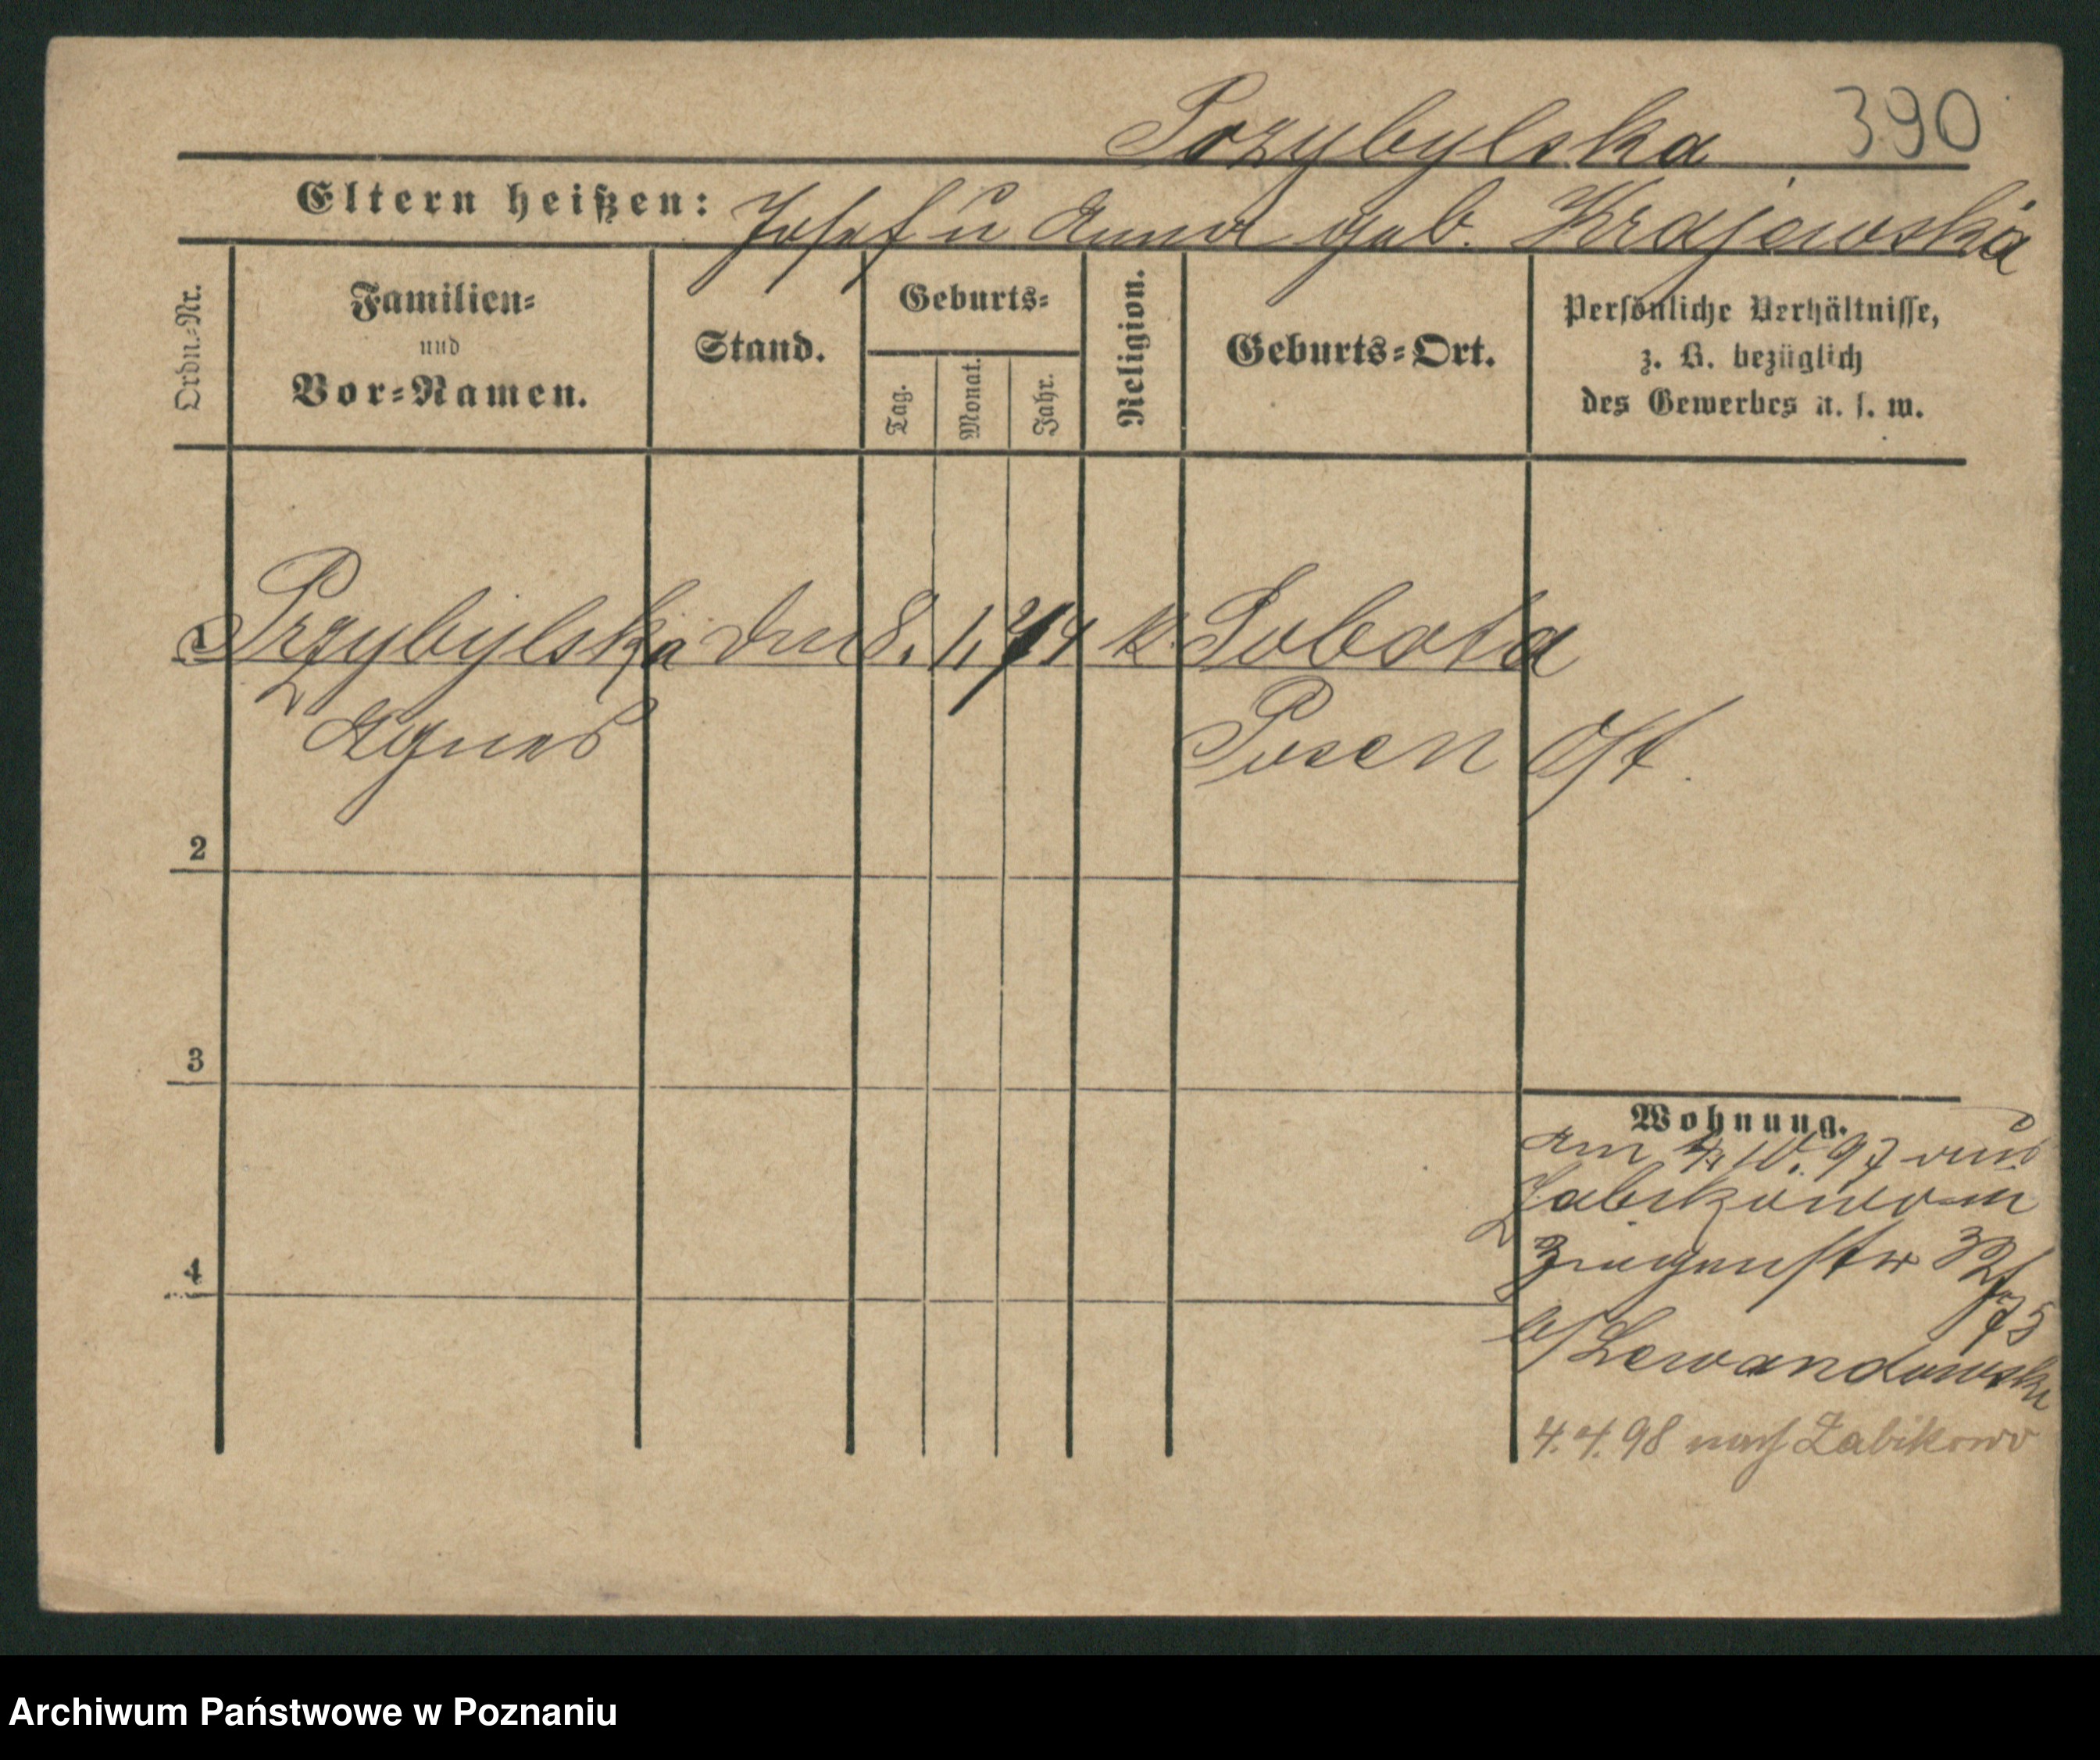 Przybylska 390
Eltern heißen: Josef u Anna geb. Krajewska
Ordn.-Nr.
Familien-
und
Vor-Namen.
Stand.
Geburts-
Tag.
Monat.
Jahr.
Religion.
Geburts-Ort.
Persönliche Verhältnisse,
z. B. bezüglich
des Gewerbes u. s. w.
1 Przybylska 8. 1. 74 k. Sobota
Agnes Posen Ost.
2
3
4
Wohnung.
am 4. 10. 97 aus
Zabikowo in
32/
75
b/Lewandowski
4. 4. 98 nach Zabikowo
Archiwum Państwowe w Poznaniu